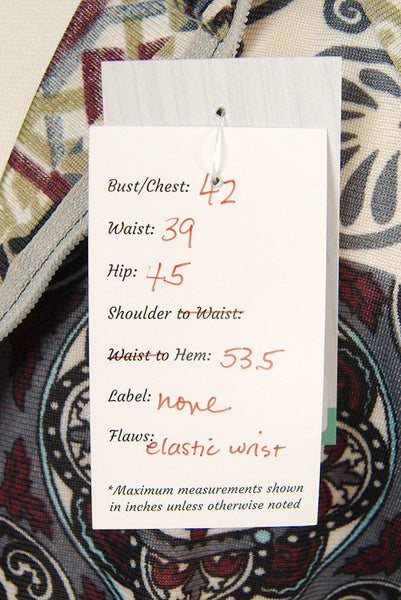 Bust/Chest: 42
Waist: 39
Hip: 45
Shoulder to Waist:
Waist to Hem: 53.5
Label: none
Flaws: elastic wrist
*Maximum measurements shown
in inches unless otherwise noted